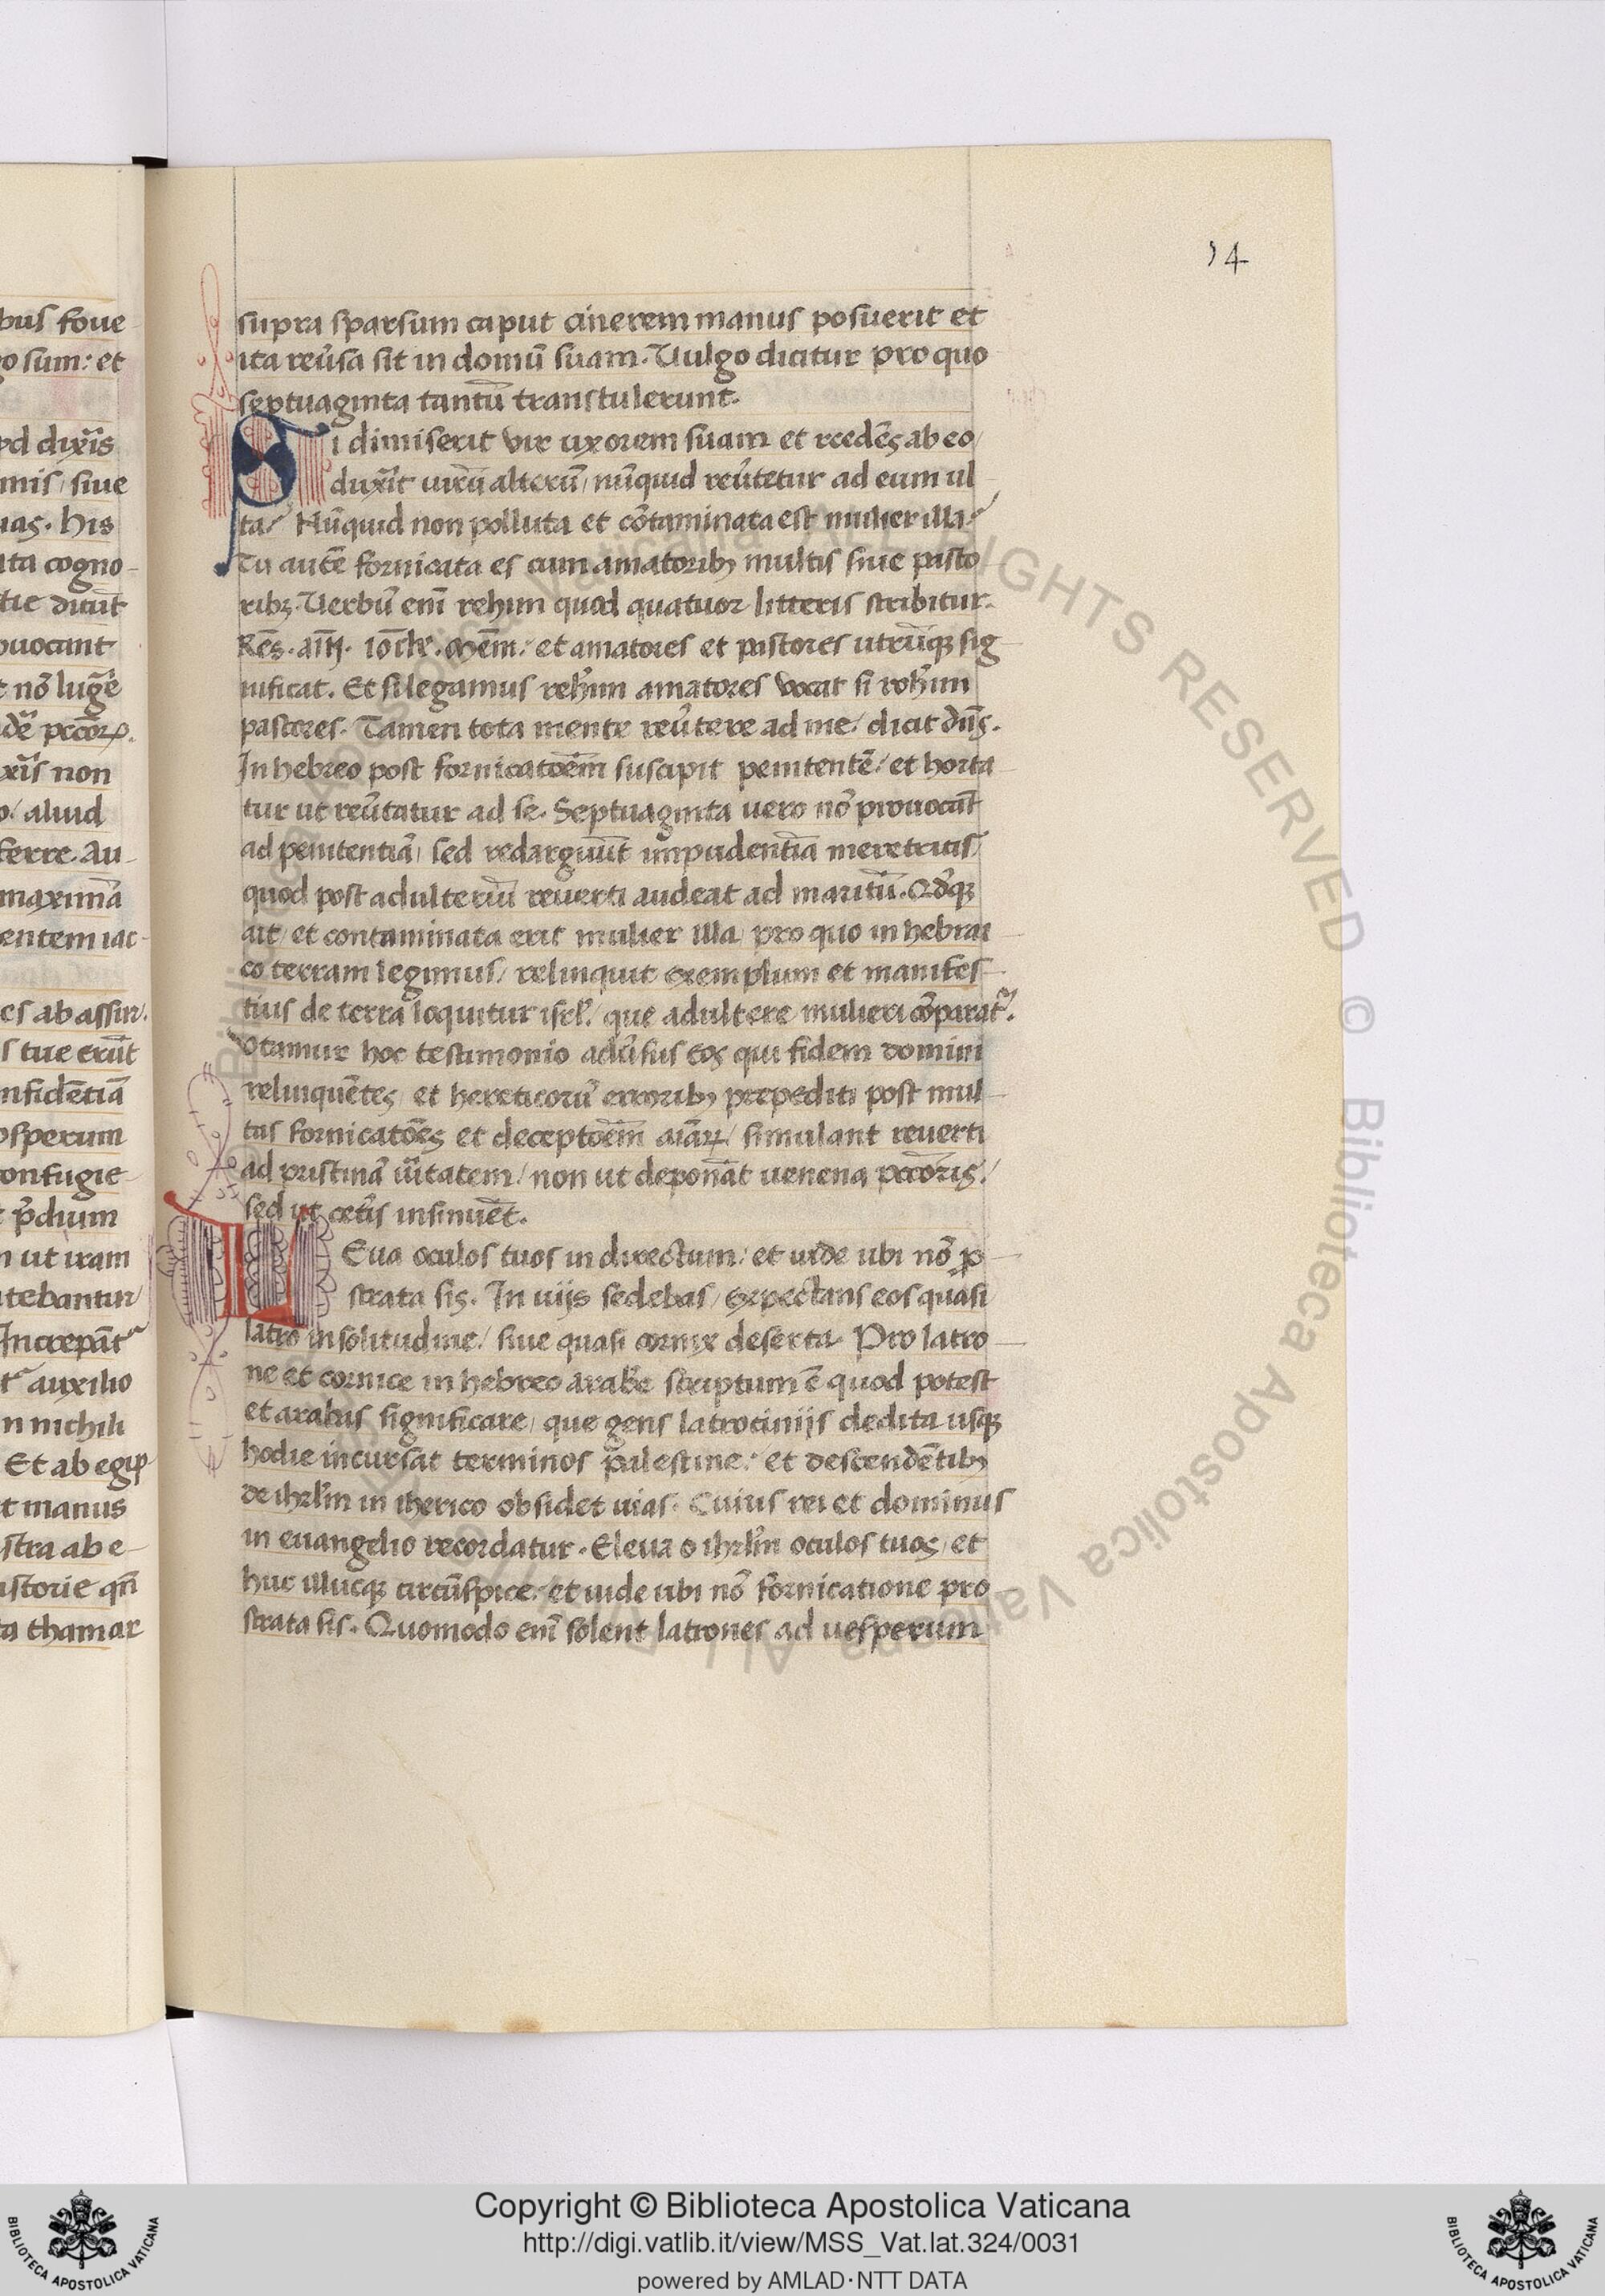 bus foue
go sum: et
dixis
mis / siue
uas. his
ita cogno-
tie dicūt
ouocant
nō lugē
xis non
aliud
ferre. Au-
maximā
entem iac-
es ab assir.
s tue erūt
nfidētiā
osperum
confugie-
p̄dium
n ut iram
itebantur
Increpāt
auxilio
n nichili
Et ab egip
et manus
stra ab e-
istorie qn̄
ta thamar
14
supra sparsum caput cinerem manus posuerit et
ita reūsa sit in domū suam. Uulgo dicitur pro quo
septuaginta tantū transtulerunt.
Si dimiserit vir uxorem suam et rcedēs ab eo /
duxīt uirū alterū / nūquid reūtetur ad eum ul
tra? Nūquid non polluta et cōtaminata est mulier illa?
Tu autē fornicata es cum amatoribꝫ multis siue pasto
ribꝫ. Uerbū enī rehim quod quatuor litteris scribitur.
Rēs. aīn. ioth. mēm: et amatores et pastores utrūqꝫ sig
nificat. Et si legamus rehim amatores vocat si rohim
pastores. Tamen tota mente reūtere ad me / dicit dn̄s.
In hebreo post fornicatōem suscipit penitentē / et horta
tur ut reūtatur ad se. Septuaginta uero nō prouocāt
ad penitentiā / sed redarguūt impudentiā meretricis /
quod post adulteriū reuerti audeat ad maritū. Qd̄qꝫ
ait / et contaminata erit mulier illa / pro quo in hebrai
co terram legimus / relinquit exemplum et manifes-
tius de terra loquitur isrl̄ / que adultere mulieri cōparat᷑.
Utamur hoc testimonio adūsus eos qui fidem domini
relinquētes / et hereticorū erroribꝫ prepediti post mul
tas fornicatōes et deceptōem aīaꝝ / simulant reuerti
ad pristinā ūitatem / non ut deponāt uenena pctōris /
sed ut cetīs insinuēt.
LEua oculos tuos in directum: et uide ubi nō ꝓ-
strata sis. In uijs sedebas / expectans eos quasi
latro in solitudine / siue quasi cornix deserta. Pro latro-
ne et cornice in hebreo arabe scriptum ē quod potest
et arabas significare / que gens latrocinijs dedita usqꝫ
hodie incursat terminos palestine: et descendētibꝫ
de ihrlm̄ in iherico obsidet uias. Cuius rei et dominus
in euangelio recordatur. Eleua o ihrlm̄ oculos tuos / et
huc illucqꝫ circūspice: et uide ubi nō fornicatione pro
strata sis. Quomodo enī solent latrones ad uesperum
Biblioteca Apostolica Vaticana ALL RIGHTS RESERVED © Biblioteca Apostolica Vaticana
Copyright © Biblioteca Apostolica Vaticana
http://digi.vatlib.it/view/MSS_Vat.lat.324/0031
powered by AMLAD·NTT DATA
BIBLIOTECA APOSTOLICA VATICANA
BIBLIOTECA APOSTOLICA VATICANA